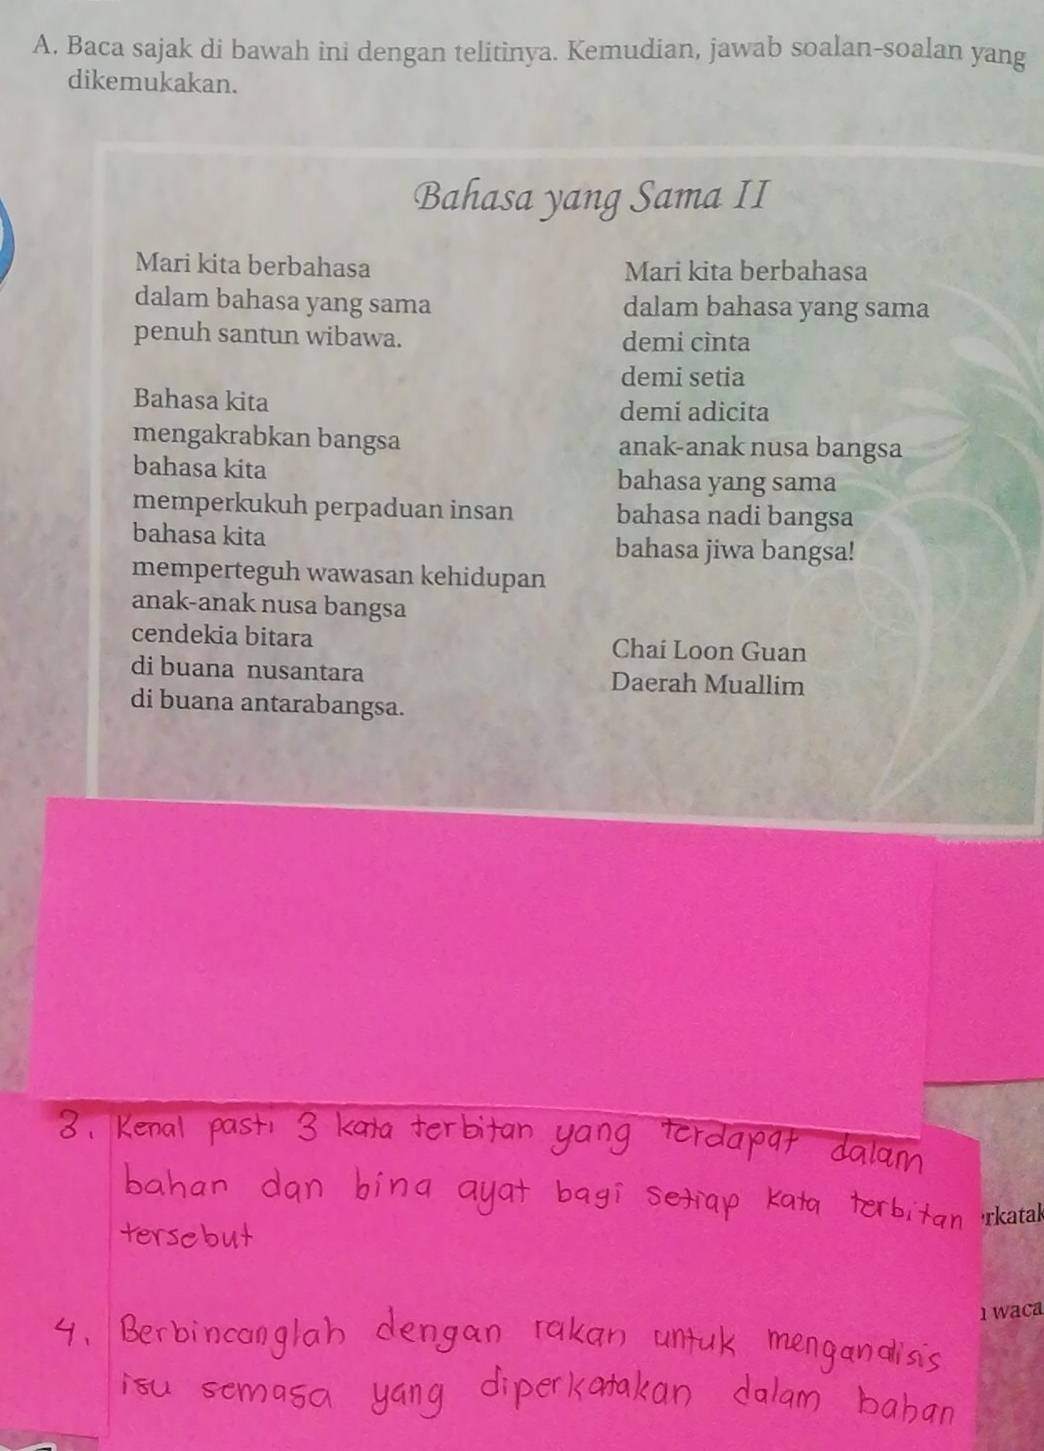 A. Baca sajak di bawah ini dengan telitinya. Kemudian, jawab soalan-soalan yang
dikemukakan.
Bahasa yang Sama II
Mari kita berbahasa
dalam bahasa yang sama
penuh santun wibawa.
Bahasa kita
mengakrabkan bangsa
bahasa kita
memperkukuh perpaduan insan
bahasa kita
memperteguh wawasan kehidupan
anak-anak nusa bangsa
cendekia bitara
di buana nusantara
di buana antarabangsa.
Mari kita berbahasa
dalam bahasa yang sama
demi cinta
demi setia
demi adicita
anak-anak nusa bangsa
bahasa yang sama
bahasa nadi bangsa
bahasa jiwa bangsa!
Chai Loon Guan
Daerah Muallim
3. Kenal pasti 3 kata terbitan yang terdapat dalam
bahan dan bina ayat bagi setiap kata terbitan
tersebut
4. Berbincanglah dengan rakan untuk menganalisis
isu semasa yang diperkatakan dalam bahan